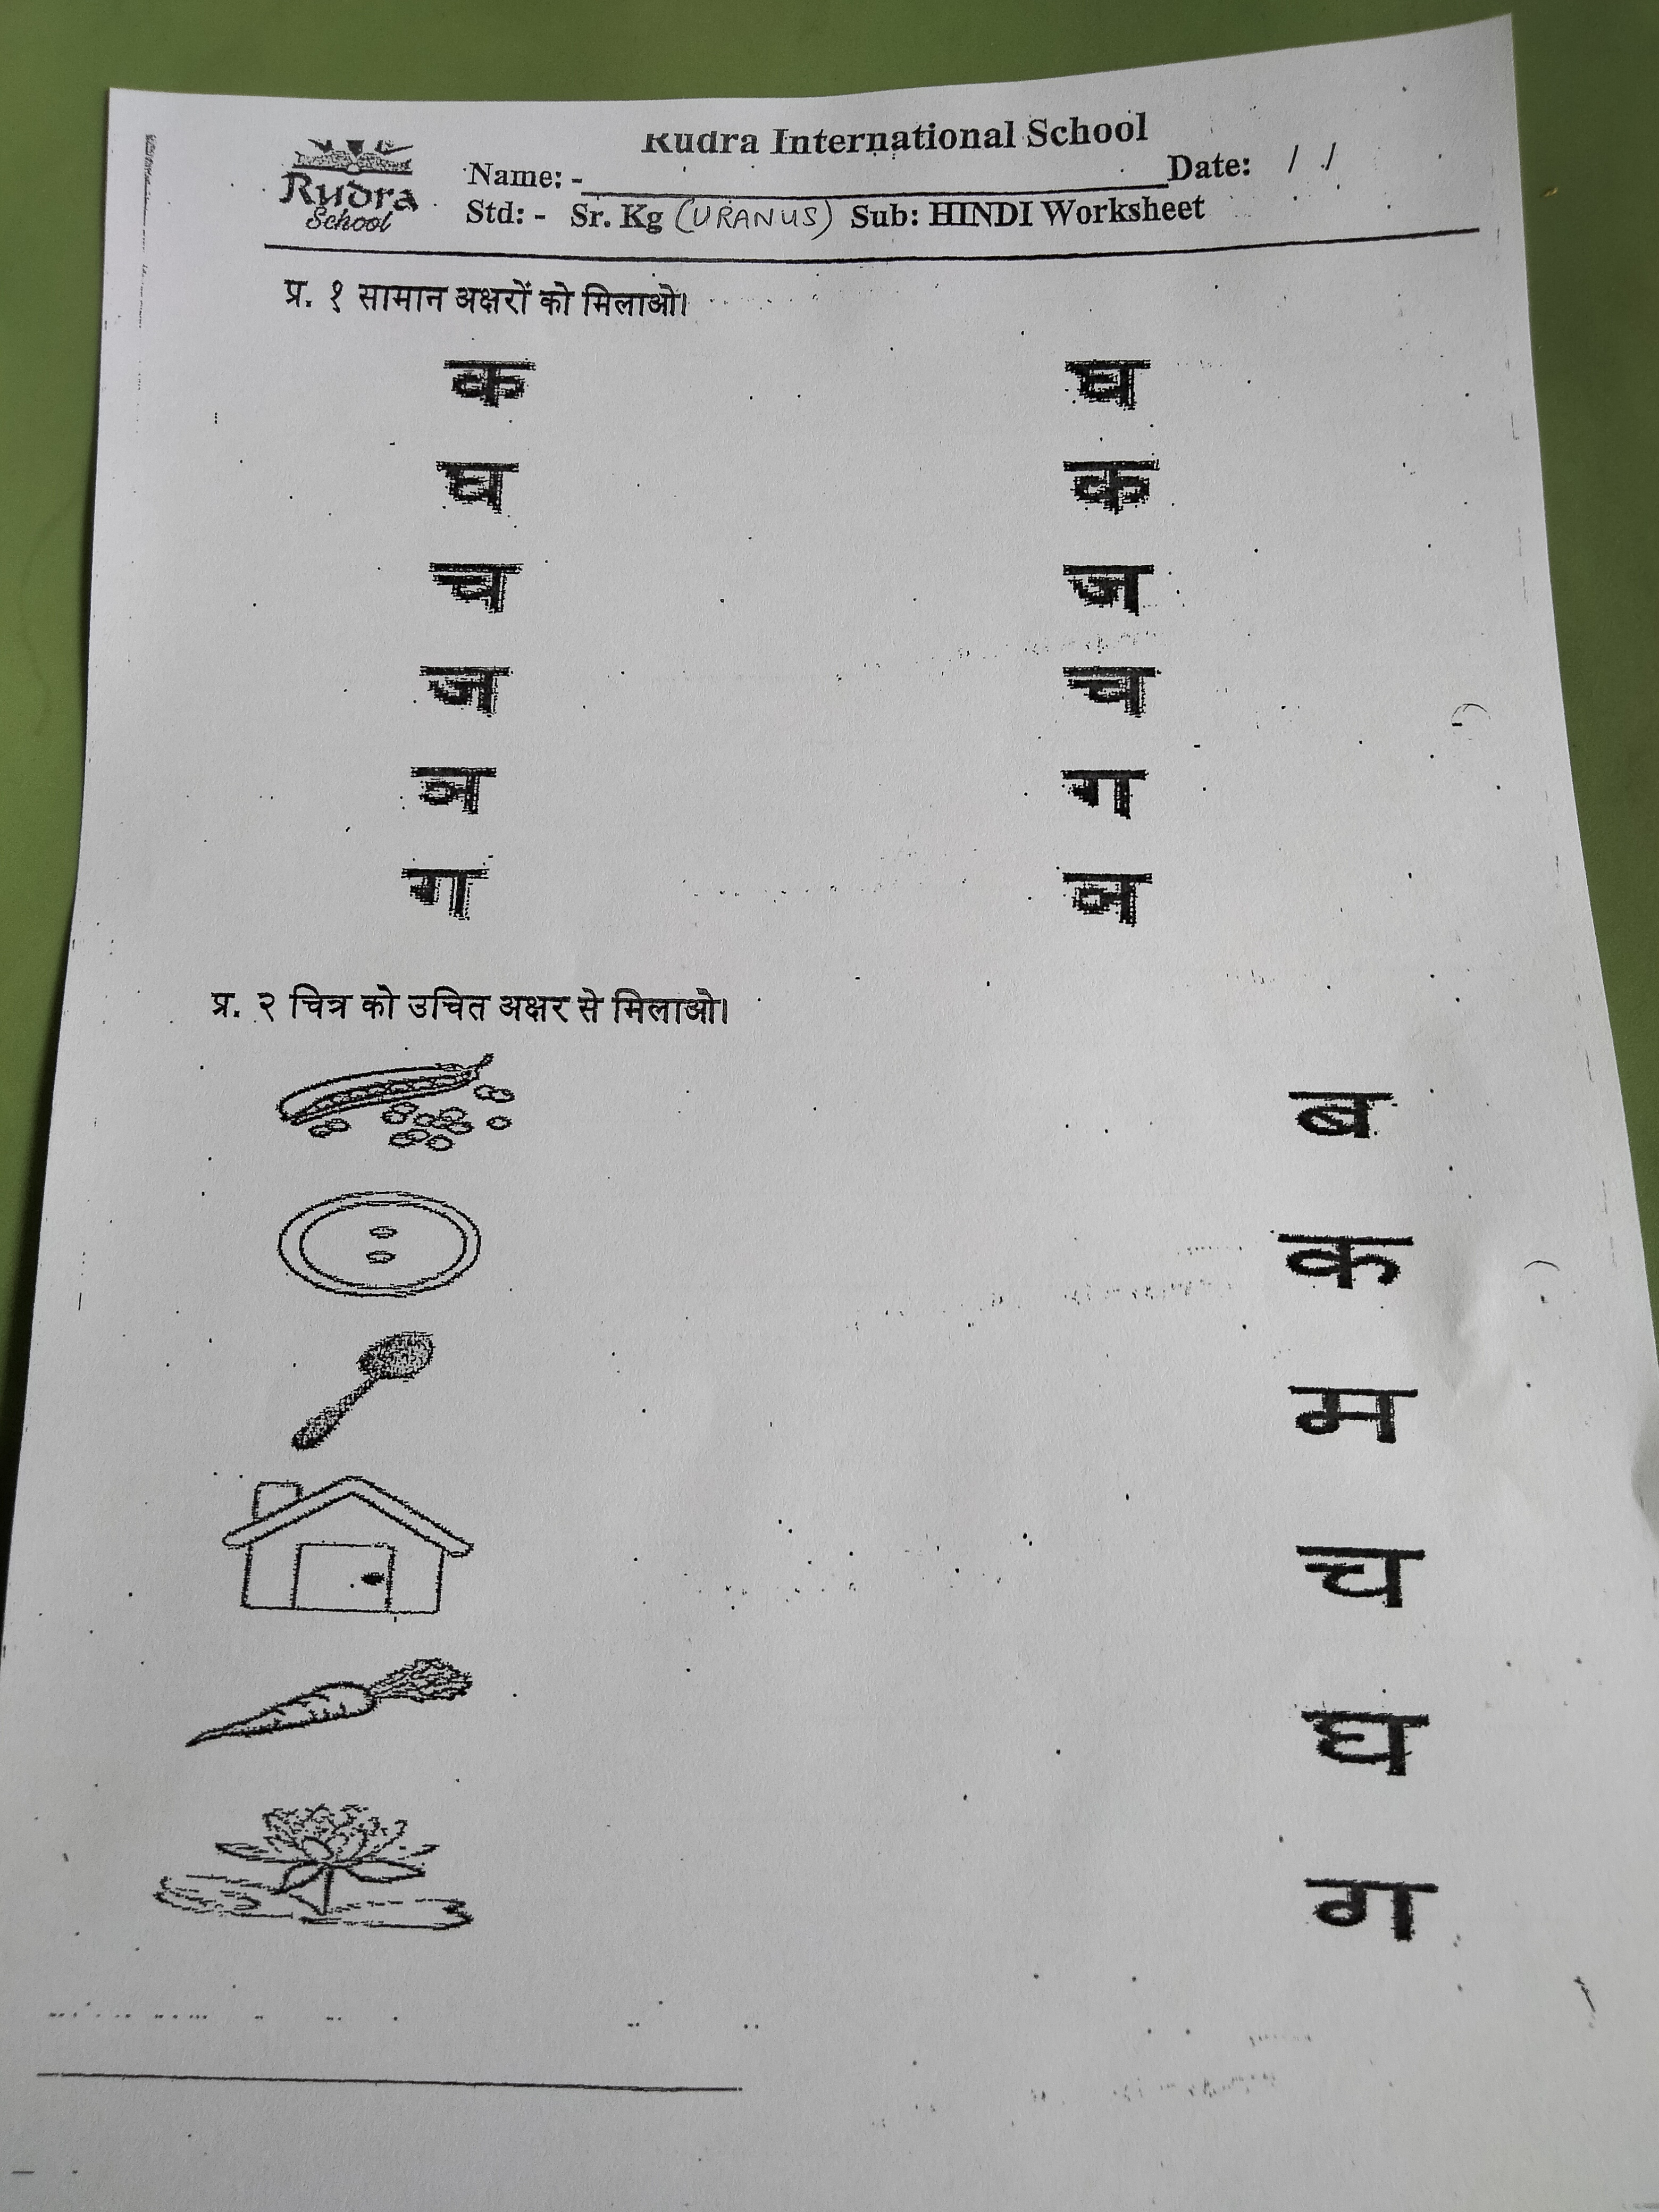 Rudra School
Rudra International School
Name: - Date: / /
Std: - Sr. Kg (URANUS) Sub: HINDI Worksheet
प्र. १ सामान अक्षरों को मिलाओ।
क घ
घ क
च ज
ज च
ञ ग
ग ञ
प्र. २ चित्र को उचित अक्षर से मिलाओ।
ब
क
म
च
घ
ग